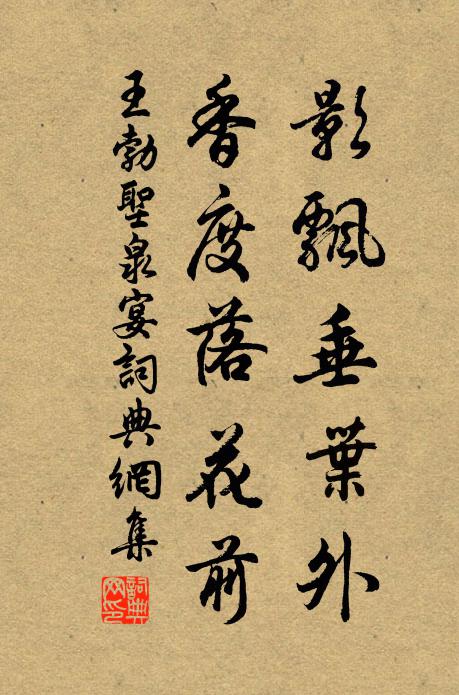 影飄垂葉外
香度落花前
王勃聖泉宴詞典網集
詞典網印